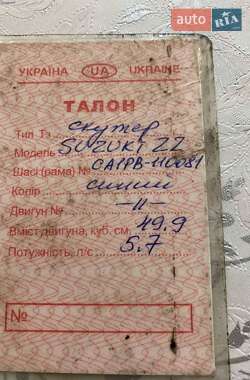 auto RIA
УКРАЇНА UA UKRAINE
ТАЛОН
Тип ТЗ скутер
Модель SUZUKI ZZ
Шасі (рама) № CA1PB-110081
Колір синий
Двигун № -11-
Вміст двигуна, куб. см 49.9
Потужність, л/с 5.7
№